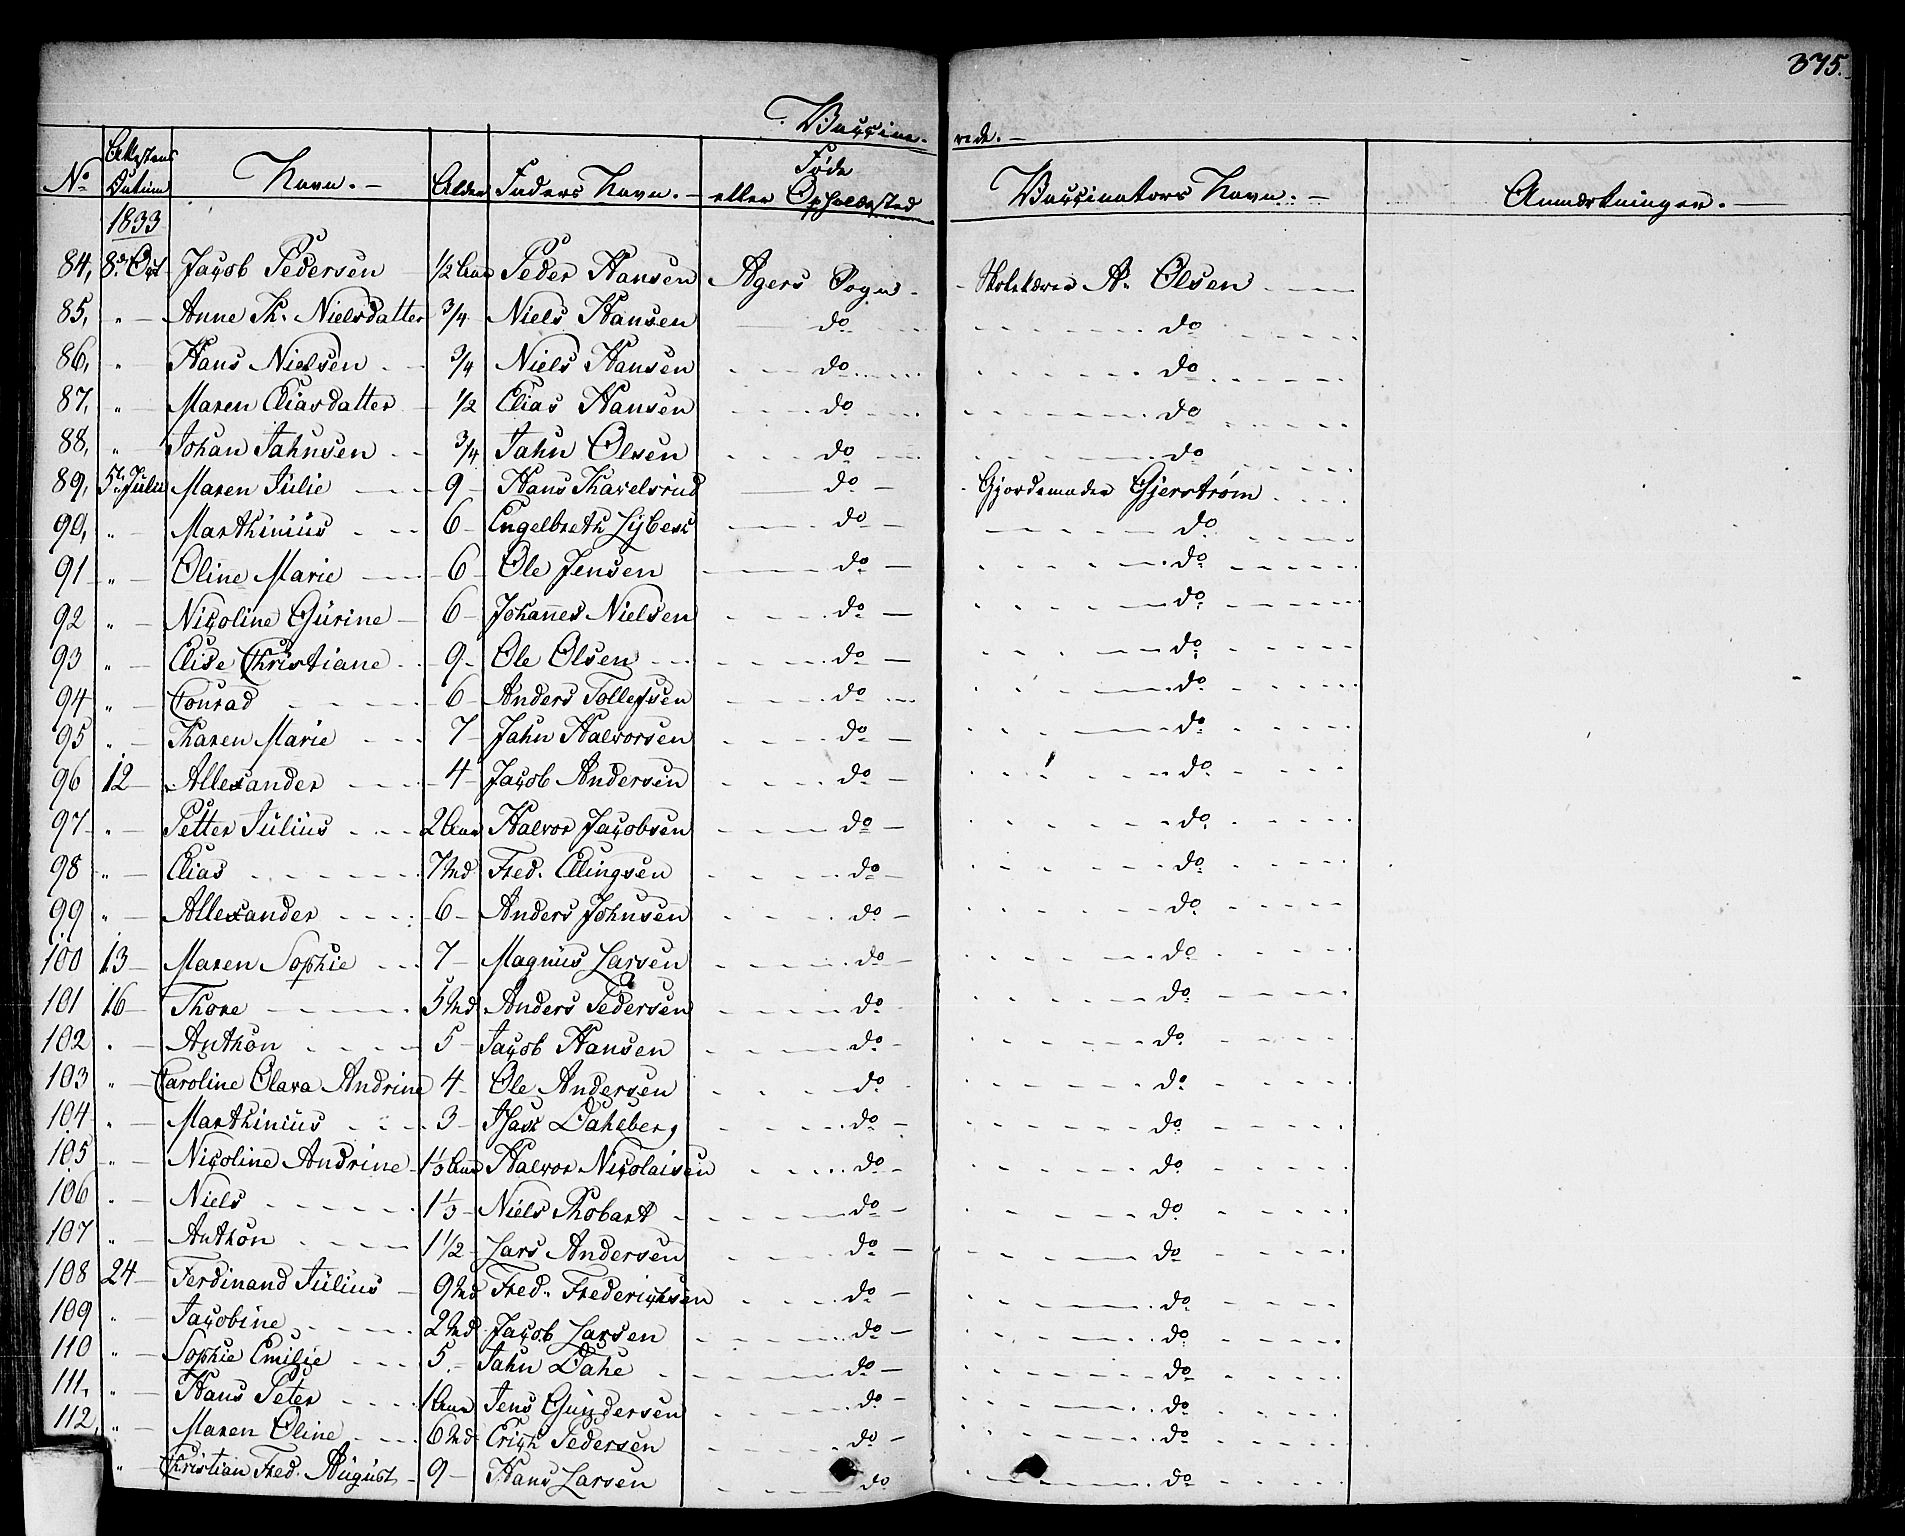 375.
Vaccine- rede.-
No Attestens Datum Navn.- Alder Faders Navn.- Føde eller Opholdssted Vaccinators Navn.- Anmærkninger.-
1833
84, 8de Oct Jacob Pedersen 1/2 Aar Peder Hansen Agers Sogn. Skolelærer A. Olsen
85, " Anne Th. Nielsdatter 3/4 Niels Hansen do do
86, " Hans Nielsen 3/4 Niels Hansen do do
87, " Maren Eliasdatter 1/2 Elias Hansen do do
88, " Johan Jahnsen 3/4 Jahn Olsen do do
89, 5te Julii Maren Julie 9 Hans Thavelsrud do Gjordemoder Gjerstrøm
90, " Marthinius 6 Engelbreth Lybeck do do
91 " Oline Marie 6 Ole Jensen do do
92 " Nicoline Gurine 6 Johannes Nielsen do do
93 " Elise Christiane 9 Ole Olsen do do
94 " Conrad 6 Anders Tollefsen do do
95 " Karen Marie 7 Jahn Halvorsen do do
96 12 Allexander 4 Jacob Andersen do do
97 " Petter Julius 2 Aar Halvor Jacobsen do do
98 " Elias 7 Md Fred. Ellingsen do do
99 " Allexander 6 Anders Johnsen do do
100 13 Maren Sophie 7 Magnus Larsen do do
101 16 Thore 5 Md Anders Pedersen do do
102 " Anthon 5 Jacob Hansen do do
103 " Caroline Clara Andrine 4 Ole Andersen do do
104 " Marthinius 3 Isach Dahlberg do do
105 " Nicoline Andrine 1 1/3 Aar Halvor Nicolaisen do do
106 " Niels 1 1/3 Niels Thobart do do
107 " Anthon 1 1/2 Lars Andersen do do
108 24 Ferdinand Julius 9 Md Fred. Frederichsen do do
109 " Jacobine 2 Md Jacob Larsen do do
110 " Sophie Emilie 5 Jahn Dahl do do
111, " Hans Peter 1 Aar Jens Gundersen do do
112, " Maren Oline 6 Md Erich Pedersen do do
" Christian Fred. August 9 Hans Larsen do do